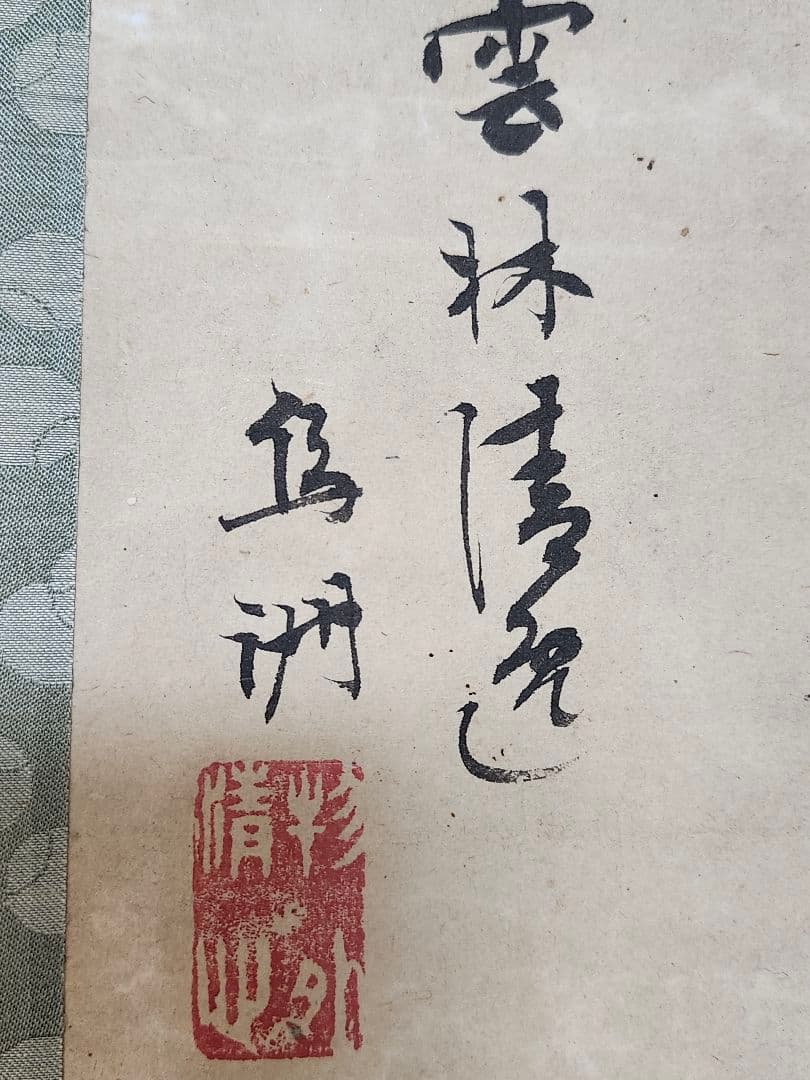 雲林清逸
烏洲
外
清